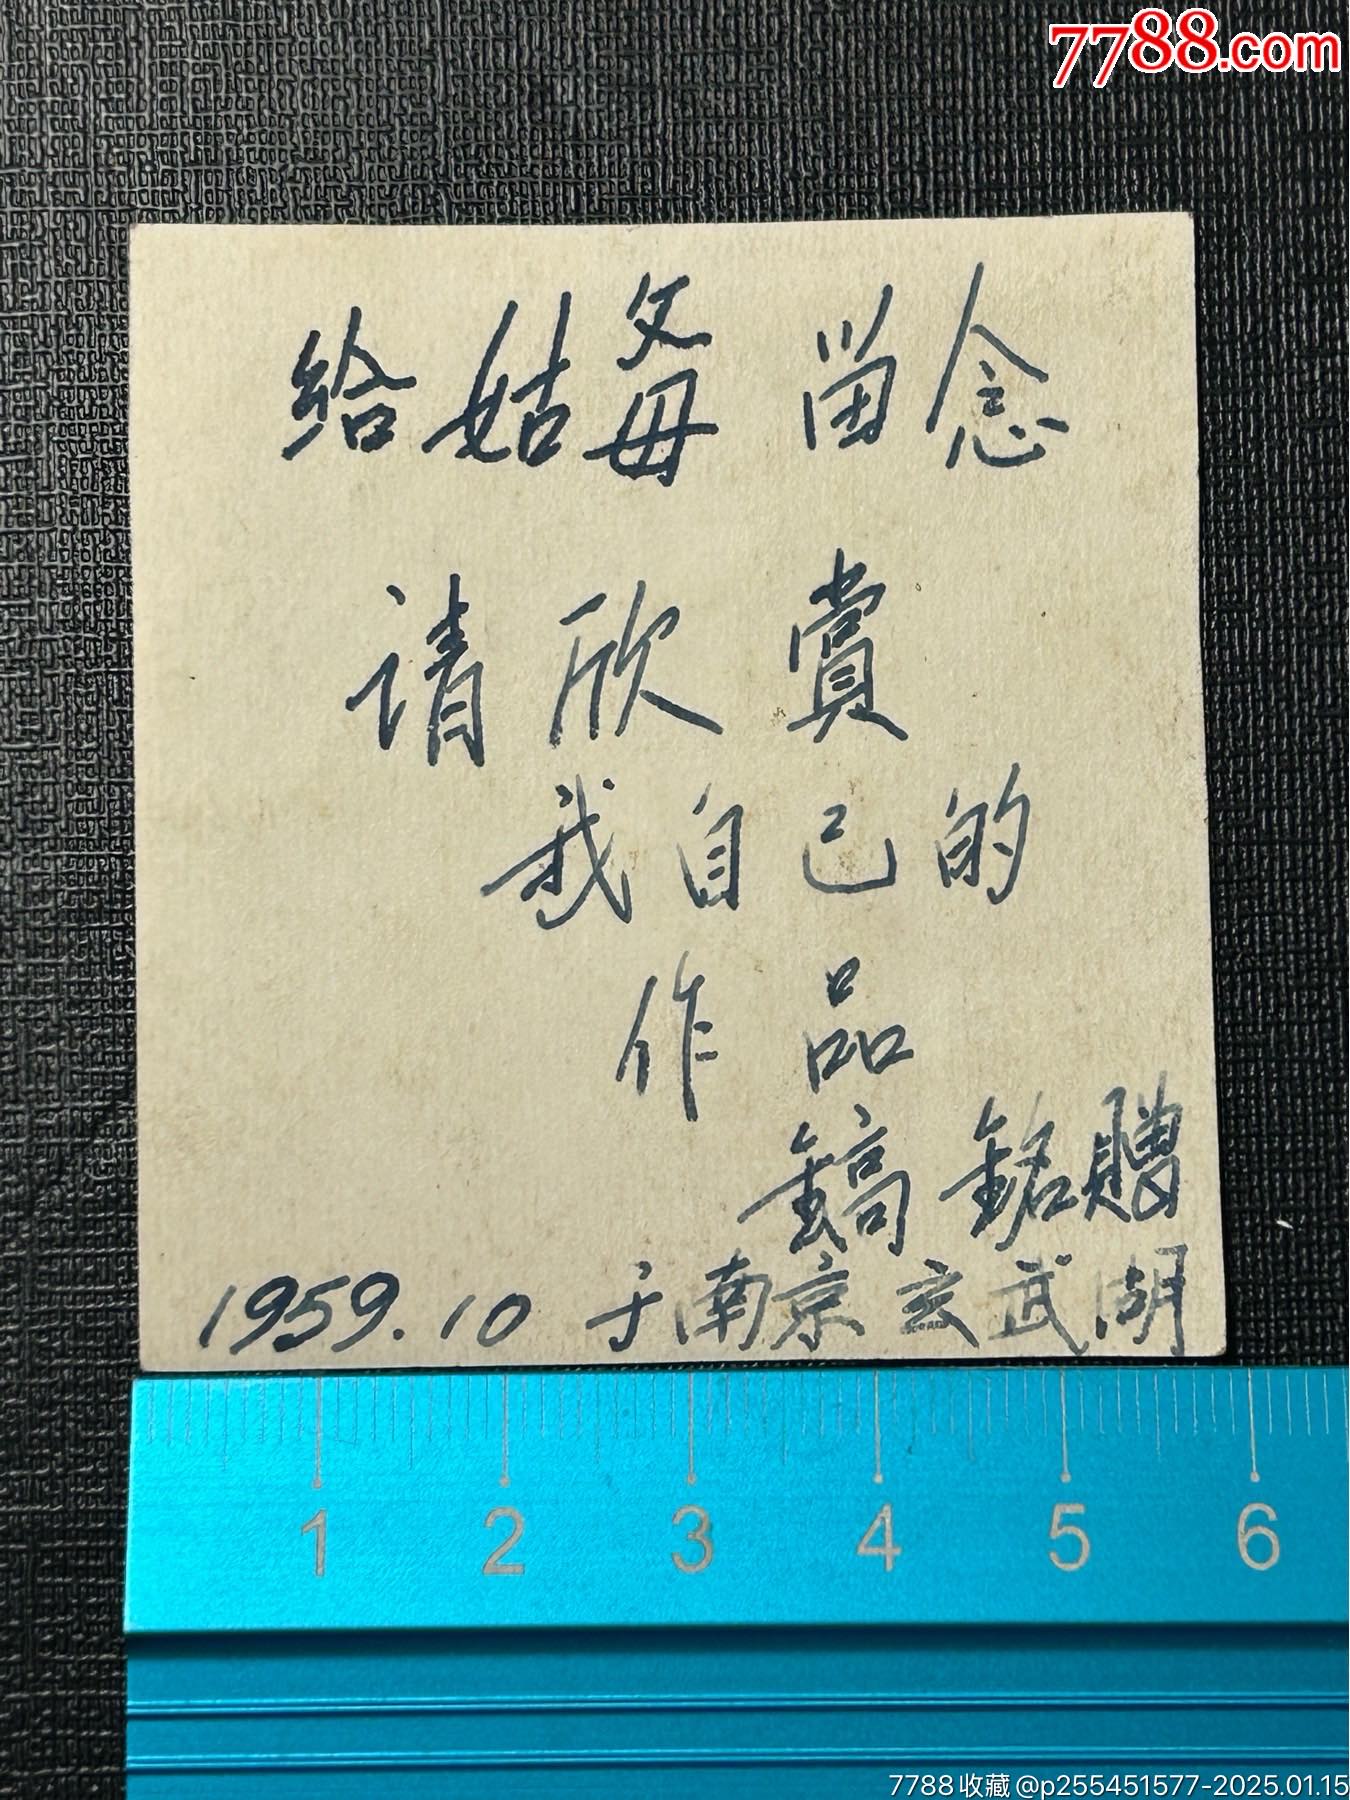 7788.com
给姑父母 留念
请欣賞
我自己的
作品
鎬銘贈
1959.10 于南京玄武湖
1 2 3 4 5 6
7788收藏@p255451577-2025.01.15